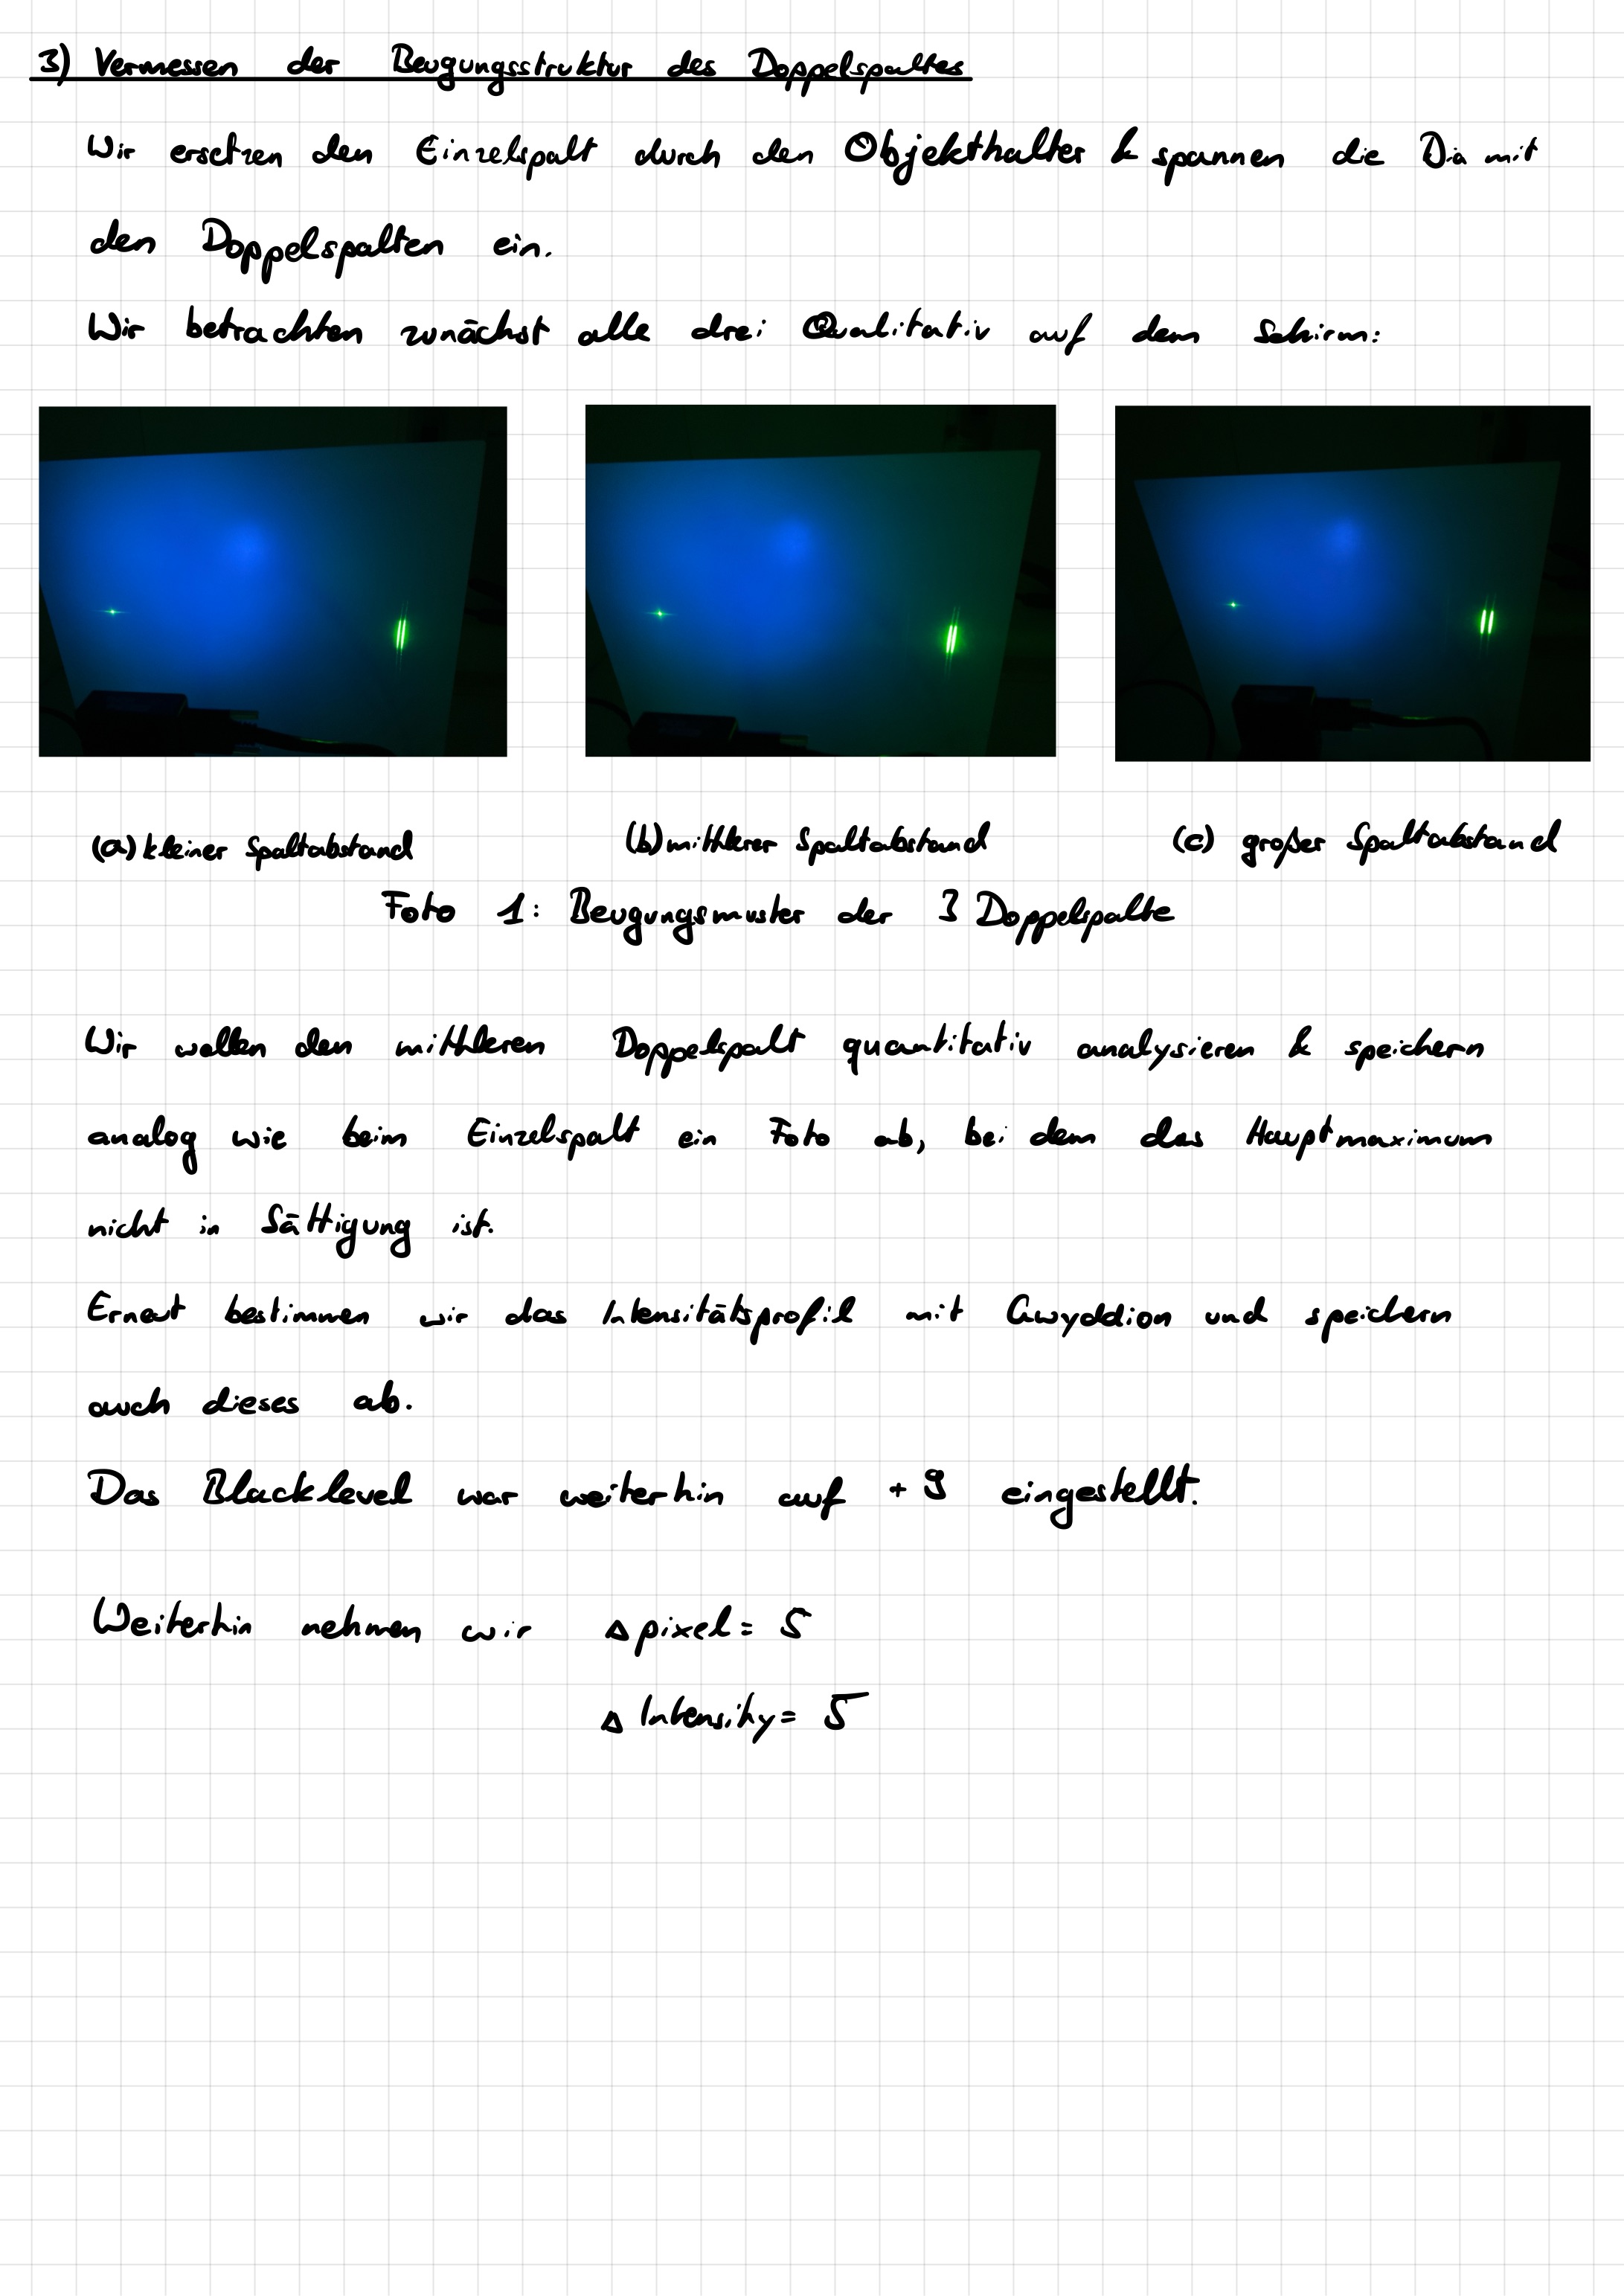 3) Vermessen der Beugungsstruktur des Doppelspaltes
Wir ersetzen den Einzelspalt durch den Objekthalter & spannen die Dia mit
den Doppelspalten ein.
Wir betrachten zunächst alle drei Qualitativ auf dem Schirm:
(a) kleiner Spaltabstand
(b) mittlerer Spaltabstand
(c) großer Spaltabstand
Foto 1: Beugungsmuster der 3 Doppelspalte
Wir wollen den mittleren Doppelspalt quantitativ analysieren & speichern
analog wie beim Einzelspalt ein Foto ab, bei dem das Hauptmaximum
nicht in Sättigung ist.
Erneut bestimmen wir das Intensitätsprofil mit Gwyddion und speichern
auch dieses ab.
Das Blacklevel war weiterhin auf +9 eingestellt.
Weiterhin nehmen wir Δpixel = 5
Δ Intensity = 5